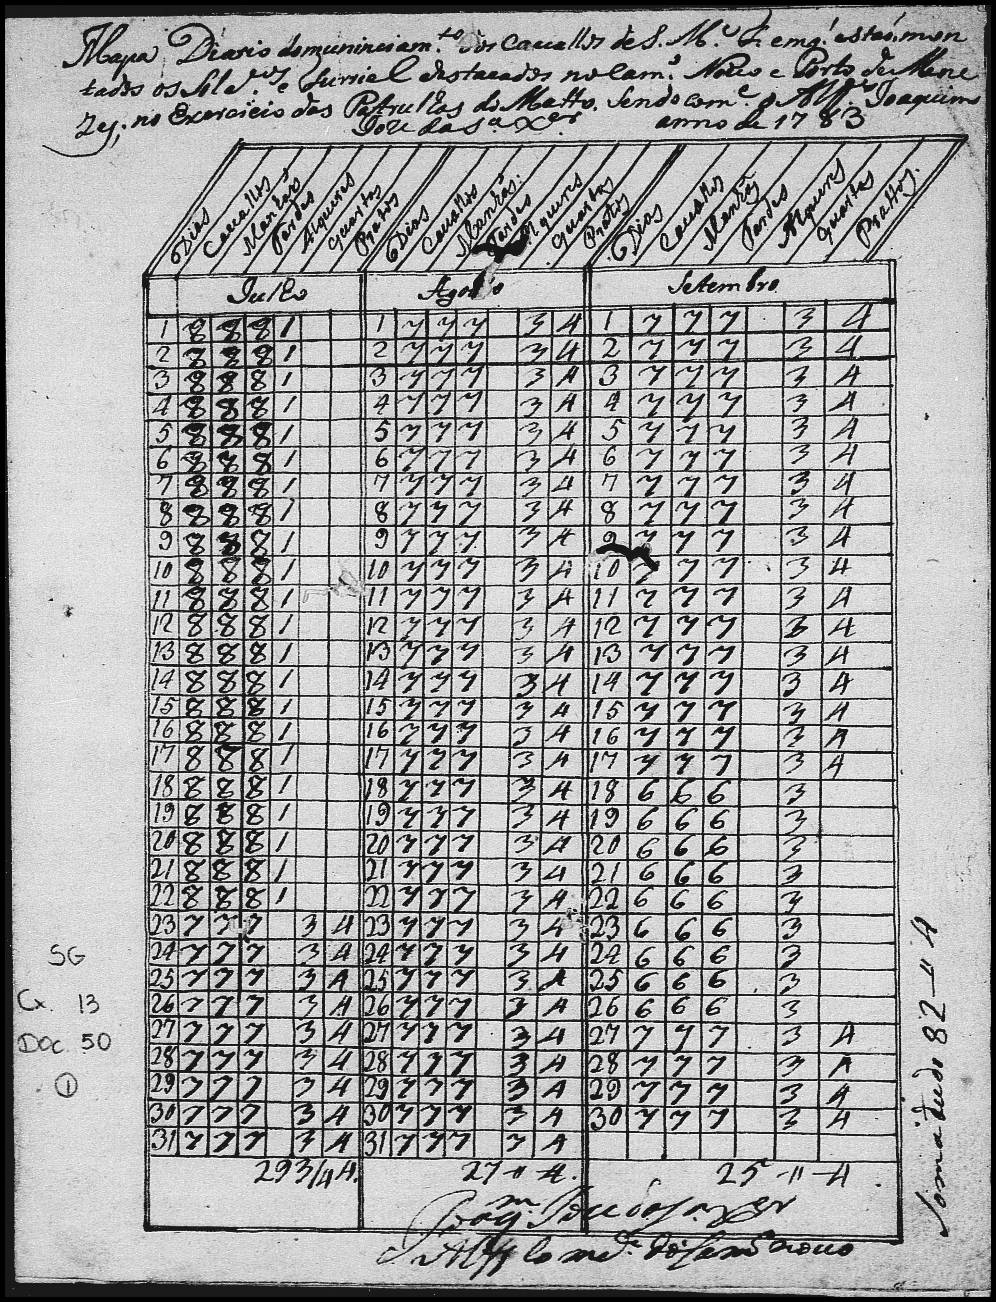 Mapa Diario do municiam.to dos Cauallos de S. M.e
tados os Sold.os e destacados no Cam.o Nouo e Porto de Mene
zes; no Exercicio das Patrulhas do Matto. Sendo com.e o Alf.es Joaquim
Joze da S.a X.er anno de 1783
Dias Cauallos Manhãs Tardes Alqueres Quartas Prattos Dias Cauallos Manhãs Tardes Alqueres Quartas Prattos Dias Cauallos Manhãs Tardes Alqueres Quartas Prattos
Julho Agosto Setembro
1 8 8 8 1 1 7 7 7 3 4 1 7 7 7 3 4
2 8 8 8 1 2 7 7 7 3 4 2 7 7 7 3 4
3 8 8 8 1 3 7 7 7 3 4 3 7 7 7 3 4
4 8 8 8 1 4 7 7 7 3 4 4 7 7 7 3 4
5 8 8 8 1 5 7 7 7 3 4 5 7 7 7 3 4
6 8 8 8 1 6 7 7 7 3 4 6 7 7 7 3 4
7 8 8 8 1 7 7 7 7 3 4 7 7 7 7 3 4
8 8 8 8 1 8 7 7 7 3 4 8 7 7 7 3 4
9 8 8 8 1 9 7 7 7 3 4 9 7 7 7 3 4
10 8 8 8 1 10 7 7 7 3 4 10 7 7 7 3 4
11 8 8 8 1 11 7 7 7 3 4 11 7 7 7 3 4
12 8 8 8 1 12 7 7 7 3 4 12 7 7 7 3 4
13 8 8 8 1 13 7 7 7 3 4 13 7 7 7 3 4
14 8 8 8 1 14 7 7 7 3 4 14 7 7 7 3 4
15 8 8 8 1 15 7 7 7 3 4 15 7 7 7 3 4
16 8 8 8 1 16 7 7 7 3 4 16 7 7 7 3 4
17 8 8 8 1 17 7 7 7 3 4 17 7 7 7 3 4
18 8 8 8 1 18 7 7 7 3 4 18 6 6 6 3
19 8 8 8 1 19 7 7 7 3 4 19 6 6 6 3
20 8 8 8 1 20 7 7 7 3 4 20 6 6 6 3
21 8 8 8 1 21 7 7 7 3 4 21 6 6 6 3
22 8 8 8 1 22 7 7 7 3 4 22 6 6 6 3
23 7 7 7 3 4 23 7 7 7 3 4 23 6 6 6 3
24 7 7 7 3 4 24 7 7 7 3 4 24 6 6 6 3
25 7 7 7 3 4 25 7 7 7 3 4 25 6 6 6 3
26 7 7 7 3 4 26 7 7 7 3 4 26 6 6 6 3
27 7 7 7 3 4 27 7 7 7 3 4 27 7 7 7 3 4
28 7 7 7 3 4 28 7 7 7 3 4 28 7 7 7 3 4
29 7 7 7 3 4 29 7 7 7 3 4 29 7 7 7 3 4
30 7 7 7 3 4 30 7 7 7 3 4 30 7 7 7 3 4
31 7 7 7 3 4 31 7 7 7 3 4
29 3/4 4. 27 - 11 - 4. 25 - 11 - 4
Soma tudo 82 - 11 - 4
SG
Cx. 13
Doc. 50
1
Joaq.m Joze da S.a X.er
Alf.s Com.de do Cam.o nouo